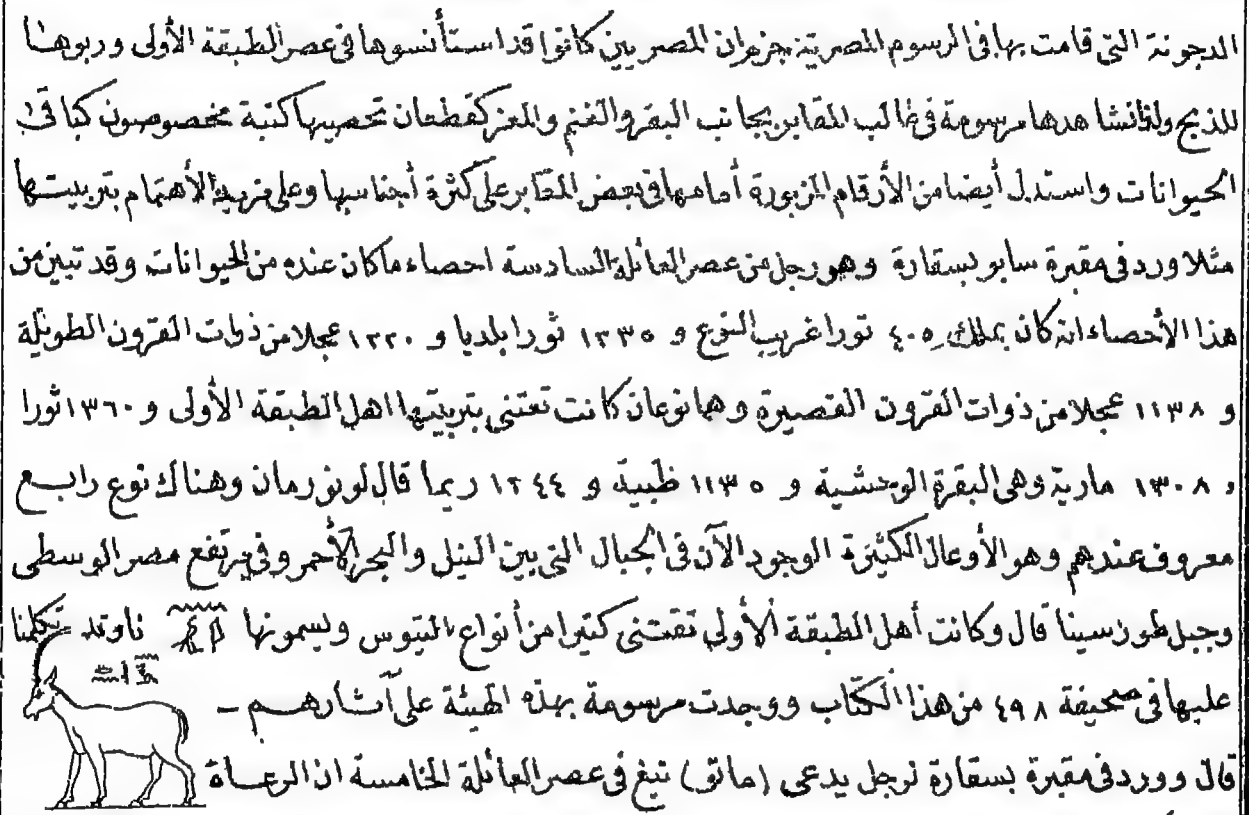 الدجونة التى قامت بها فى الرسوم المصرية جزم ان المصريين كانوا قد استأنسوها فى عصر الطبقة الأولى وربوها
للذبح ولذا نشاهدها مرسومة فى غالب المقابر بجانب البقر والغنم والمعز كقطعان تحصيها كتبة مخصوصون كباقى
الحيوانات واستدل أيضا من الأرقام المزبورة أمامها فى بعض المقابر على كثرة أجناسها وعلى مزيد الأهتمام بتربيتها
مثلا ورد فى مقبرة سابو بسقارة وهو رجل من عصر العائلة السادسة احصاء ما كان عنده من الحيوانات وقد تبين من
هذا الأحصاء انه كان يملك ٤٠٥ ثورا غريب النوع و ١٢٣٥ ثورا بلديا و ١٢٢٠ عجلا من ذوات القرون الطويلة
و ١١٣٨ عجلا من ذوات القرون القصيرة وهما نوعان كانت تعتنى بتربيتها اهل الطبقة الأولى و ١٣٦٠ ثورا
و ١٣٠٨ مارية وهى البقرة الوحشية و ١١٣٥ ظبية و ١٢٤٤ ريما قال لونورمان وهناك نوع رابع
معروف عندهم وهو الأوعال الكثيرة الوجود الآن فى الجبال التى بين النيل والبحر الأحمر وفى مرتفع مصر الوسطى
وجبل طور سينا قال وكانت أهل الطبقة الأولى تقتنى كثيرا من أنواع التيوس ويسمونها ناو قد تكلمنا
عليها فى صحيفة ٤٩٨ من هذا الكتاب ووجدت مرسومة بهذه الهيئة على آثارهم -
قال وورد فى مقبرة بسقارة لرجل يدعى (ماتو) نبغ فى عصر العائلة الخامسة ان الرعاة